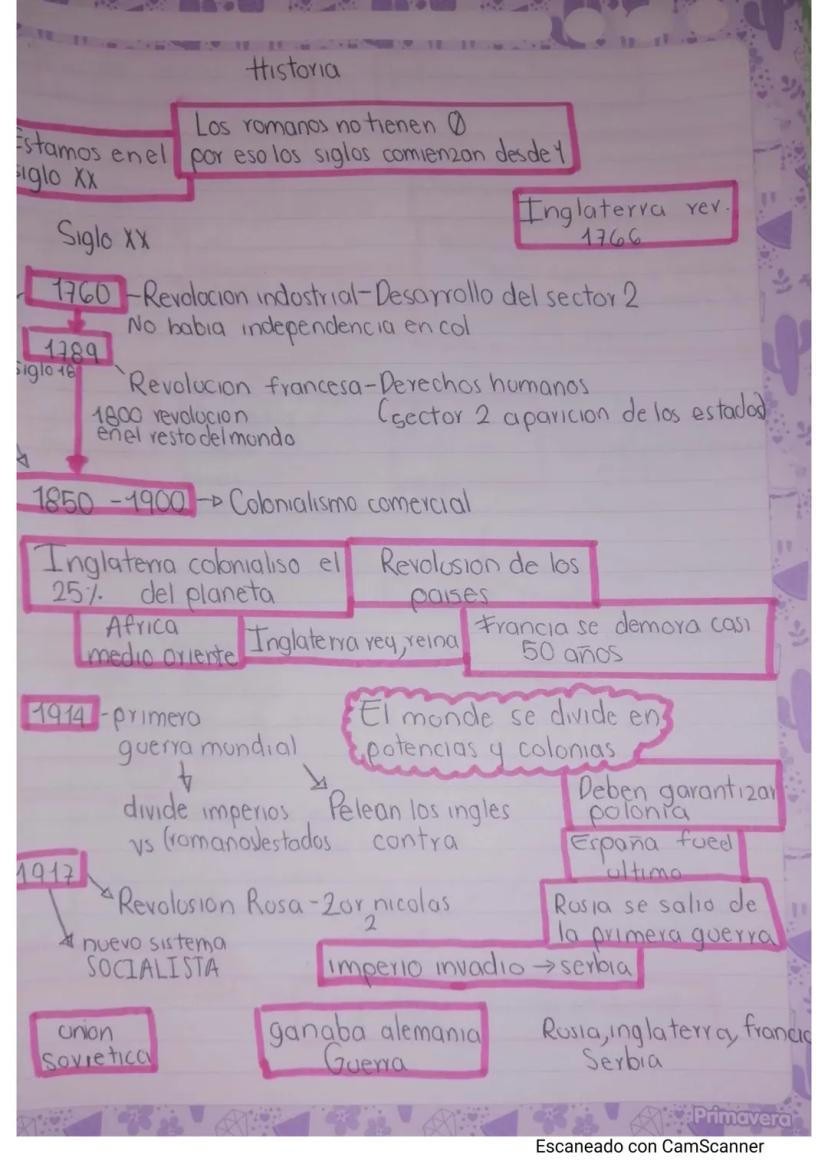 Historia
Los romanos no tienen 0
por eso los siglos comienzan desde 1
Estamos en el
siglo XX
Inglaterra rev.
1766
Siglo XX
1760 - Revolocion indostrial - Desarrollo del sector 2
No babia independencia en col
1789
siglo 18
Revolucion francesa - Derechos humanos
(sector 2 aparicion de los estados)
1800 revolucion
en el resto del mundo
1850 - 1900 → Colonialismo comercial
Inglaterra colonialiso el
25% del planeta
Revolusion de los
paises
Africa
medio oriente
Inglaterra rey, reina
Francia se demora casi
50 años
1914 - primero
guerra mundial
El monde se divide en
potencias y colonias
divide imperios
vs (romanos)estados
Pelean los ingles
contra
Deben garantizar
polonia
España fue el
ultimo
1917
Revolusion Rosa - Zar nicolas
2
nuevo sistema
SOCIALISTA
Rusia se salio de
la primera guerra
imperio invadio → serbia
union
sovietica
ganaba alemania
Guerra
Rusia, inglaterra, francia
Serbia
Primavera
Escaneado con CamScanner